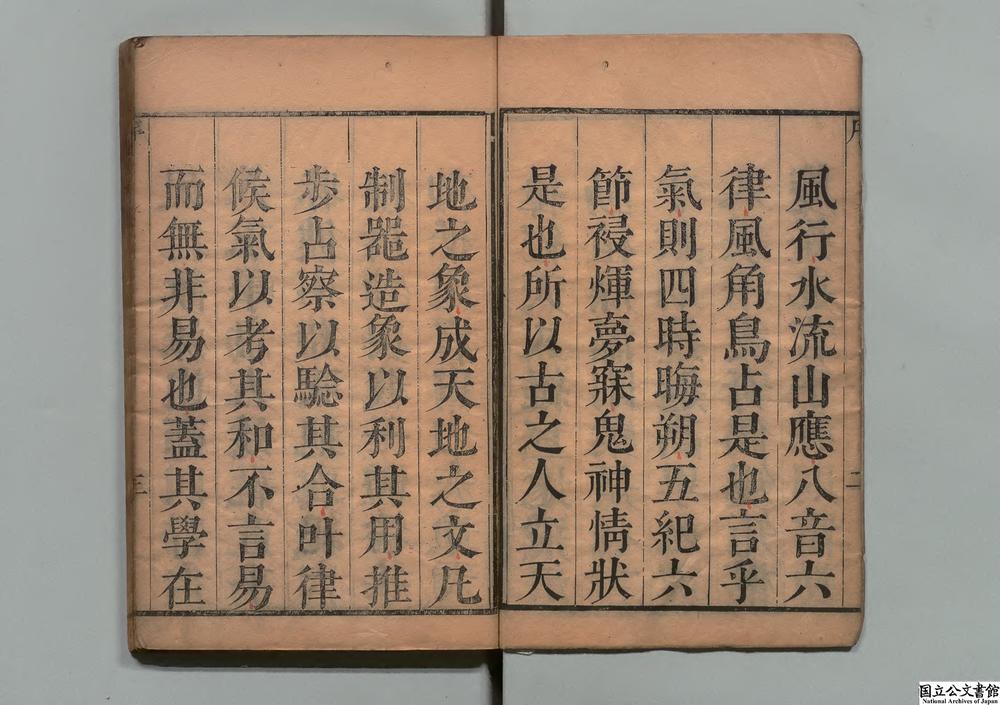 風行水流山應八音六
律風角鳥占是也言乎
氣則四時晦朔五紀六
節祲煇夢寐鬼神情狀
是也所以古之人立天
地之象成天地之文凡
制器造象以利其用推
步占察以驗其合叶律
候氣以考其和不言易
而無非易也蓋其學在
序
二
三
国立公文書館
National Archives of Japan